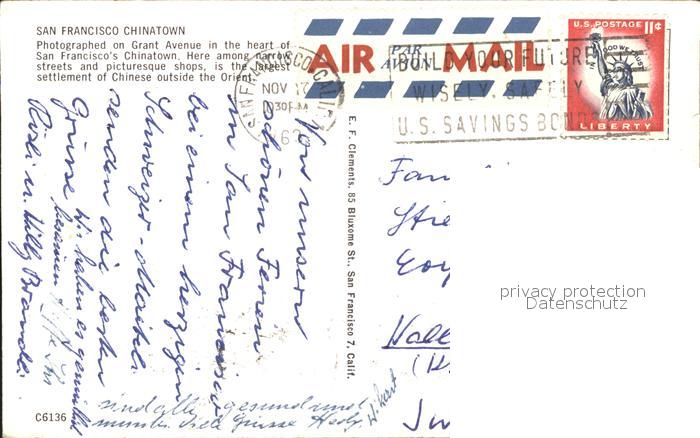 SAN FRANCISCO CHINATOWN
Photographed on Grant Avenue in the heart of
San Francisco's Chinatown. Here among narrow
streets and picturesque shops, is the largest
settlement of Chinese outside the Orient.
PAR
AIR AVION MAIL
SAN FRANCISCO, CALIF.
NOV 17
30 P.M.
BUILD YOUR FUTURE
WISELY, SAFELY
U.S. SAVINGS BONDS
U.S. POSTAGE 11¢
IN GOD WE TRUST
LIBERTY
E. F. Clements, 85 Bluxome St., San Francisco 7, Calif.
Von unsern
schönen Ferien
in San Francisco
bei einem herzigen
Schweizer-Maiteli
senden die besten
Grüsse
Wir haben es gemütlich
Rosli u. Willy
sind alle gesund und
munter Viele Grüsse Hedy
Fam
privacy protection
Datenschutz
C6136